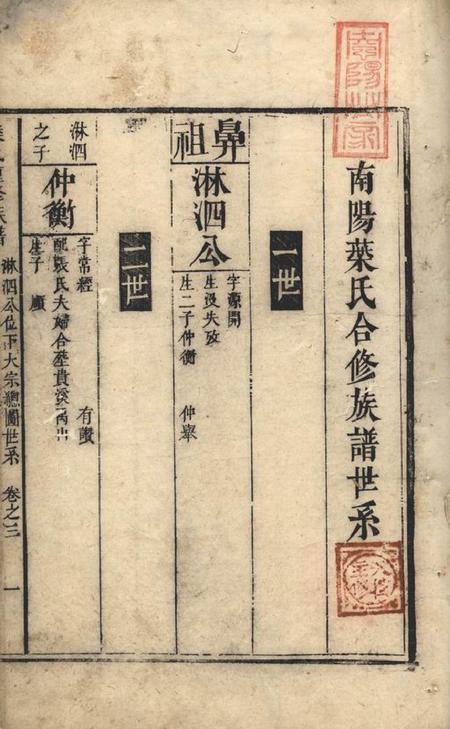 南陽世家
南陽葉氏合修族譜世系
一世
鼻祖
淋泗公
字源開
生沒失攷
生二子仲衡 仲舉
二世
淋泗
之子
仲衡
字常經 有讚
配張氏夫婦合塟貴溪
生子 顧
葉氏合修族譜
淋泗公位下大宗總圖世系 卷之三 一